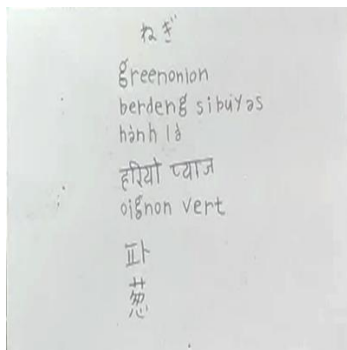 ねぎ
greenonion
berdeng sibuyas
hành lá
हरियो प्याज
oignon vert
파
葱